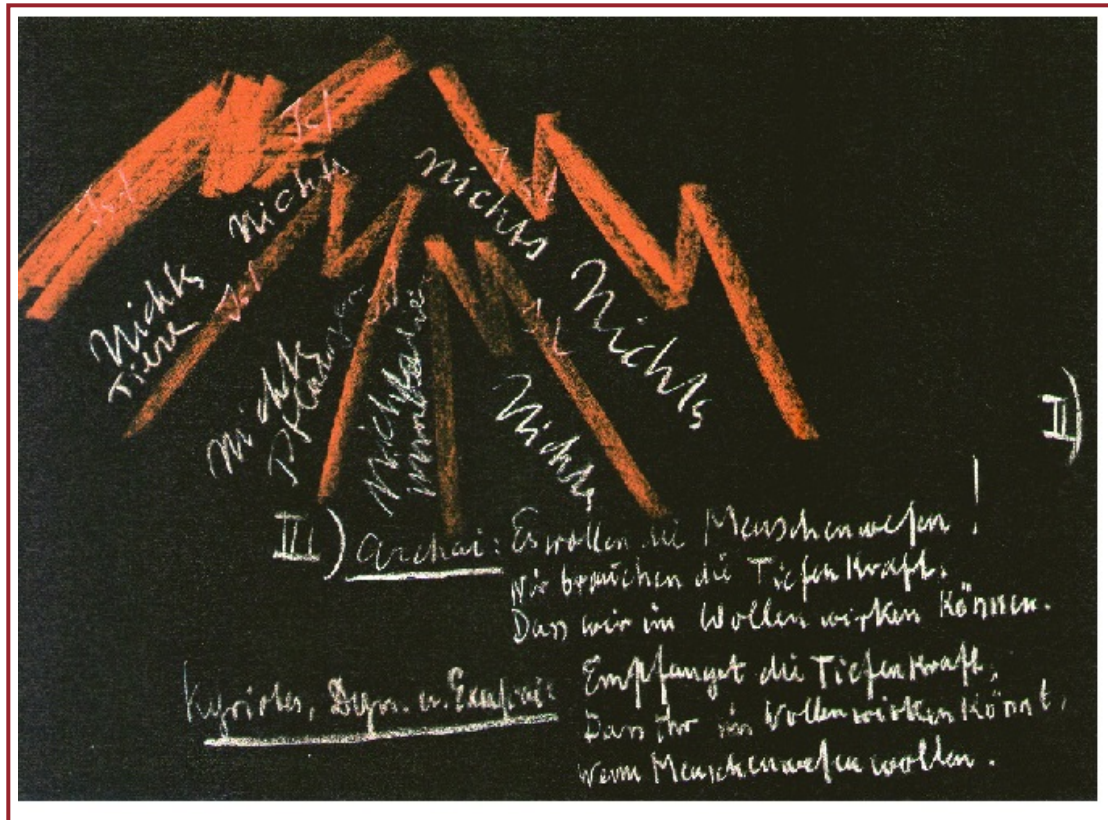 Ist
Ist
nichts
nichts
Nichts
Tiere
Ist
Nichts
Nichts
Pflanzen
Nichts
Nichts
II)
III) Archai: Es wollen die Menschenwesen!
Wir brauchen die Tiefenkraft,
Dass wir im Wollen wirken können.
Kyriotes, Dyn. u. Exusiai:
Empfanget die Tiefenkraft,
Dass Ihr im Wollen wirken könnt,
Wenn Menschenwesen wollen.